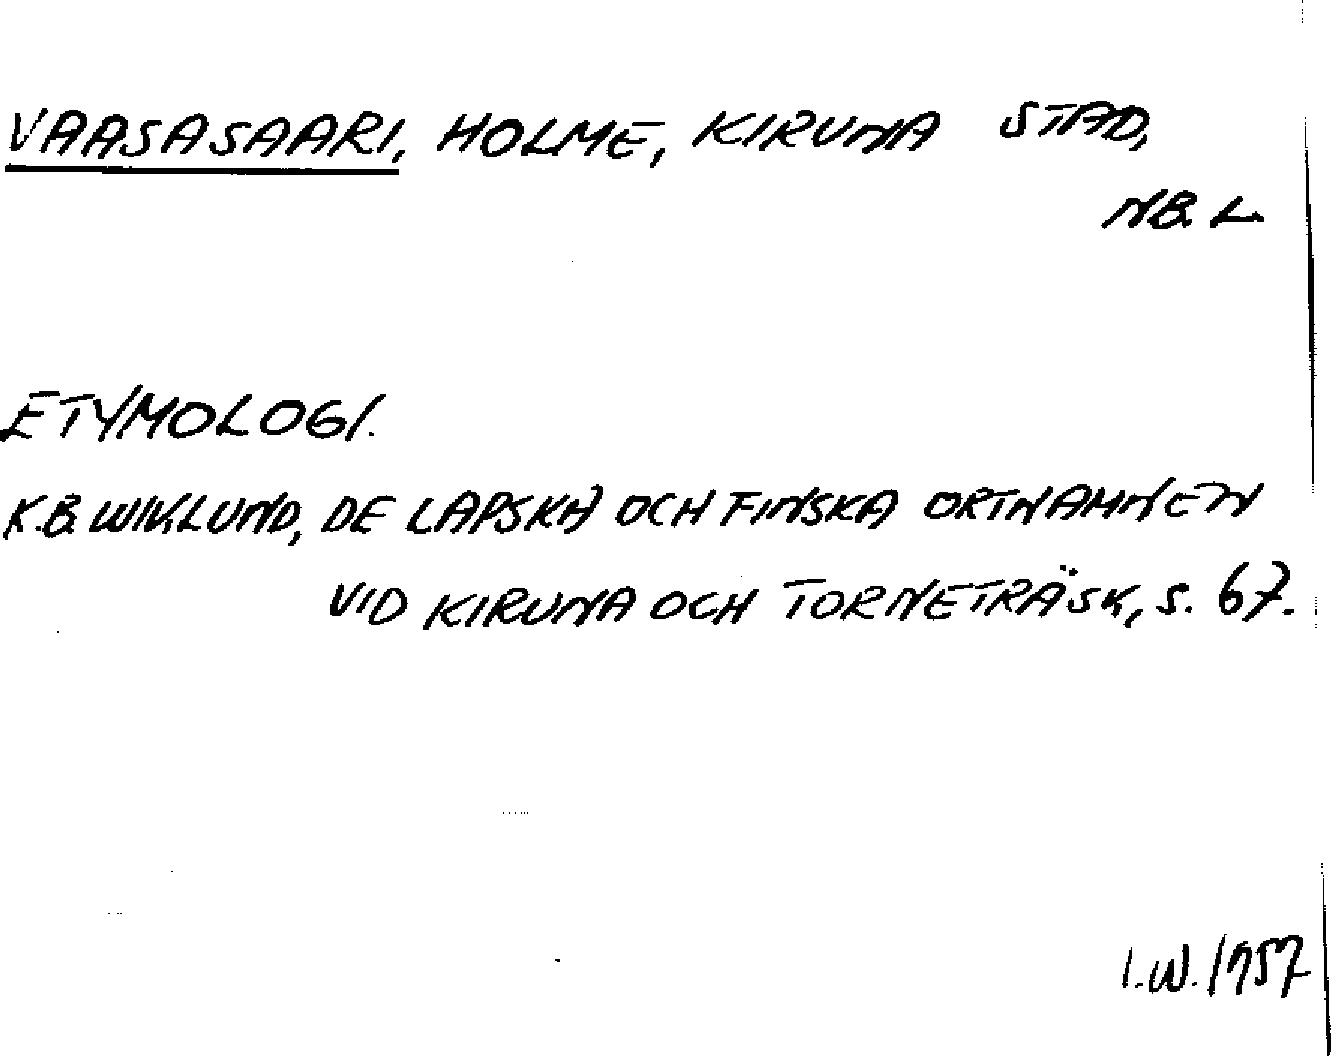 VAASASAARI, HOLME, KIRUNA STAD,
NB. L.
ETYMOLOGI.
K.B. WIKLUND, DE LAPSKA OCH FINSKA ORTNAMNEN
VID KIRUNA OCH TORNETRÄSK, S. 67.
I.W. 1957